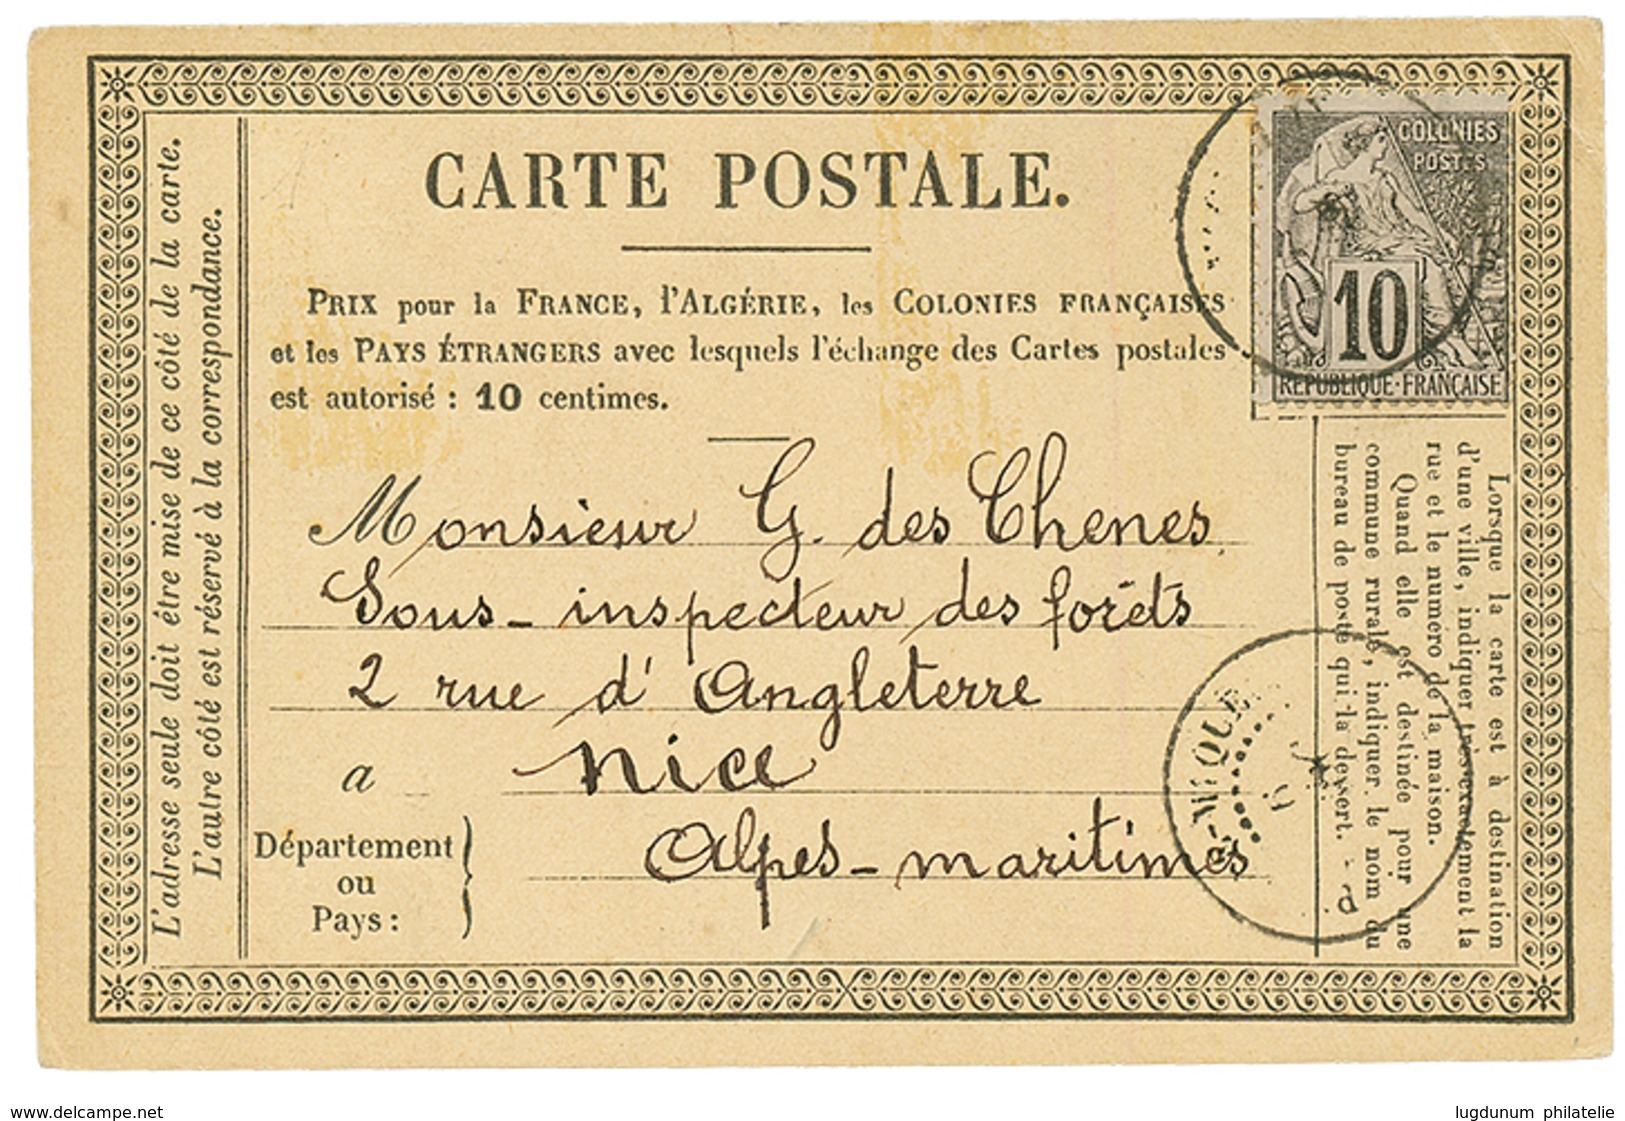 CARTE POSTALE.
PRIX pour la FRANCE, l'ALGÉRIE, les COLONIES FRANÇAISES
et les PAYS ÉTRANGERS avec lesquels l'échange des Cartes postales
est autorisé : 10 centimes.
COLONIES
POSTES
10
REPUBLIQUE·FRANÇAISE
Monsieur G. des Chenes
Sous-inspecteur des forêts
2 rue d'Angleterre
a Nice
Département
ou
Pays :
Alpes-maritimes
L'adresse seule doit être mise de ce côté de la carte.
L'autre côté est réservé à la correspondance.
Lorsque la carte est à destination
d'une ville, indiquer très exactement la
rue et le numéro de la maison.
Quand elle est destinée pour une
commune rurale, indiquer le nom du
bureau de poste qui la dessert.
QUE
delcampe.net
lugdunum philatelie